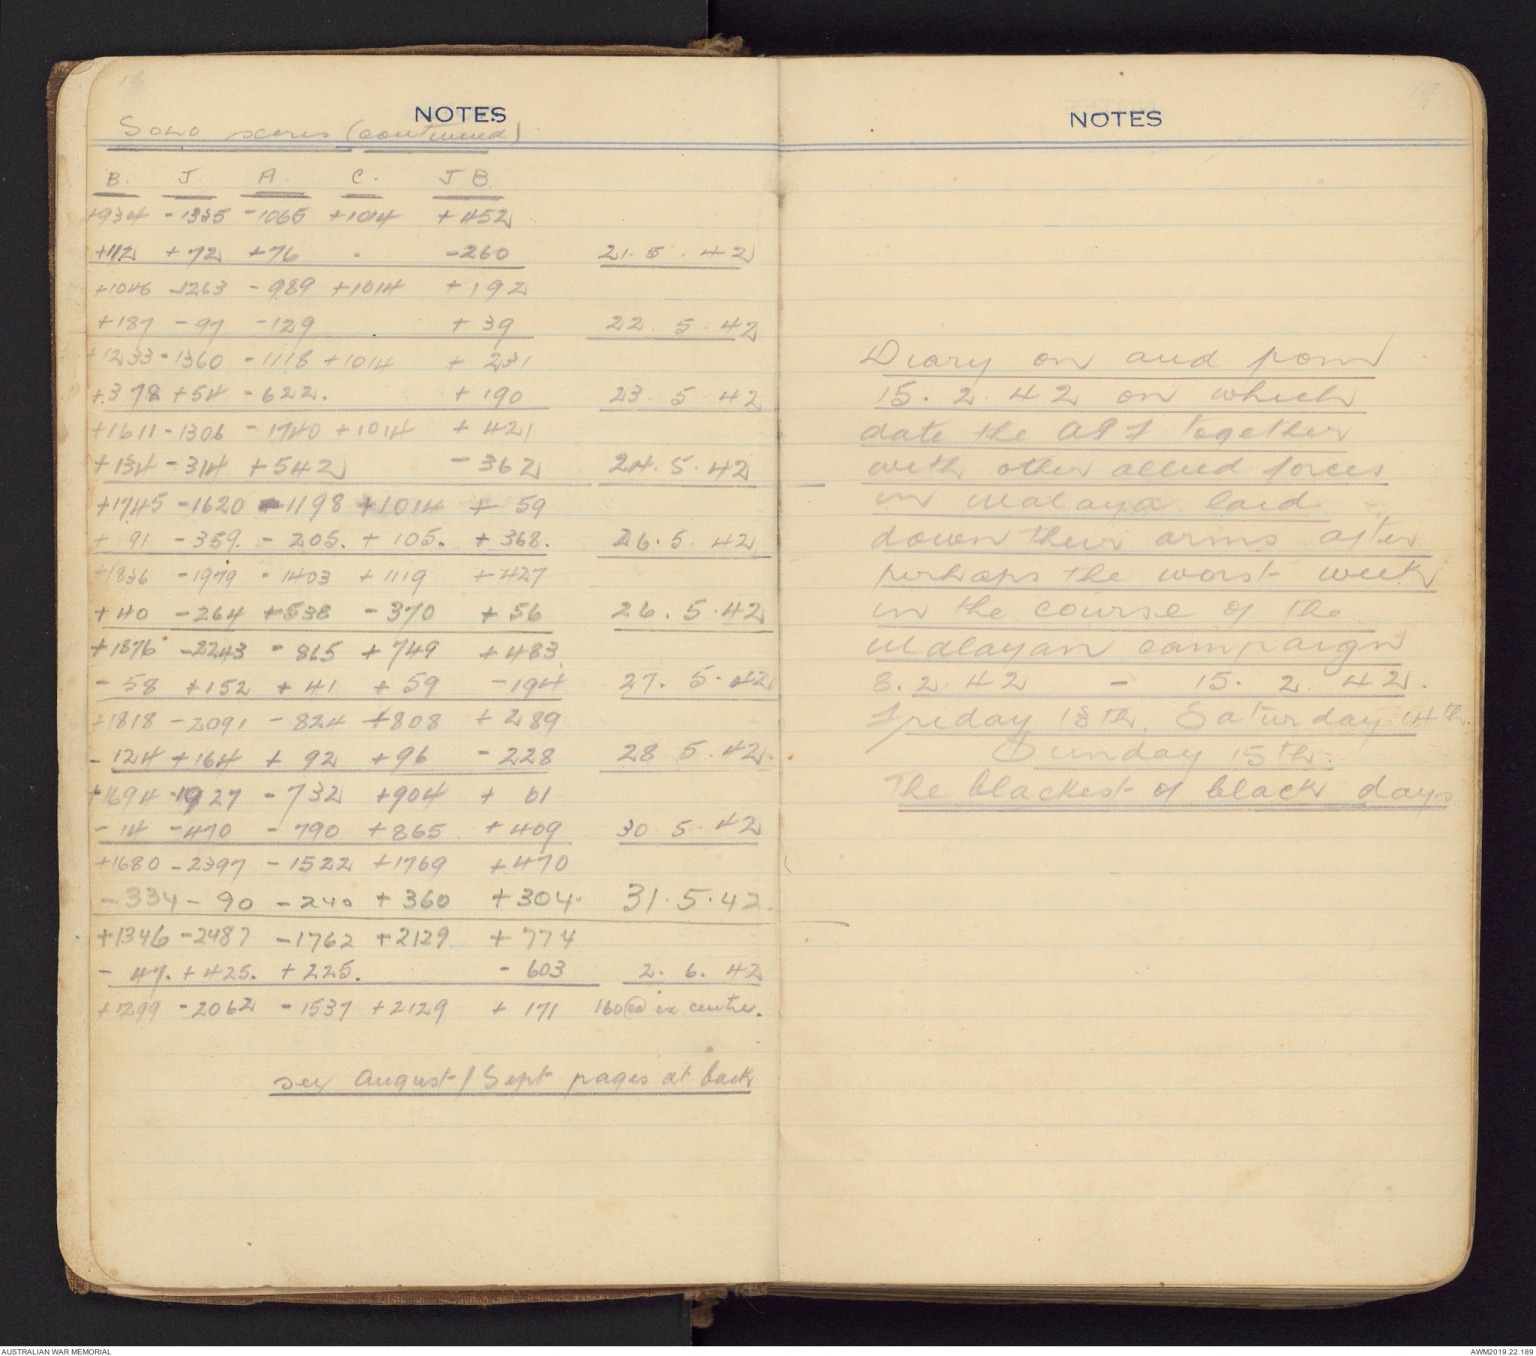 NOTES
Solo scores (continued)
B. J. A. C. J B.
+934 -1335 -1065 +1014 +452
+112 +72 +76 . -260 21.5.42
+1046 -1263 -989 +1014 +192
+187 -97 -129 . +39 22.5.42
+1233 -1360 -1118 +1014 +231
+378 +54 -622. +190 23.5.42
+1611 -1306 -1740 +1014 +421
+134 -314 +542 -362 24.5.42
+1745 -1620 -1198 +1014 +59
+91 -359. -205. +105. +368. 26.5.42
+1836 -1979 -1403 +1119 +427
+40 -264 +538 -370 +56 26.5.42
+1876 -2243 -865 +749 +483
-58 +152 +41 +59 -194 27.5.42
+1818 -2091 -824 +808 +289
-124 +164 +92 +96 -228 28.5.42
+1694 -1927 -732 +904 +61
-14 -470 -790 +865 +409 30.5.42
+1680 -2397 -1522 +1769 +470
-334 -90 -240 +360 +304. 31.5.42.
+1346 -2487 -1762 +2129 +774
-47. +425. +225. -603 2.6.42
+1299 -2062 -1537 +2129 +171 160 ex centre.
see August/Sept pages at back
NOTES
Diary on and from
15.2.42 on which
date the AIF together
with other allied forces
in Malaya laid
down their arms after
perhaps the worst week
in the course of the
Malayan campaign
8.2.42 - 15.2.42.
Friday 13th, Saturday 14th.
Sunday 15th.
The blackest of black days
AUSTRALIAN WAR MEMORIAL
AWM2019.22.189